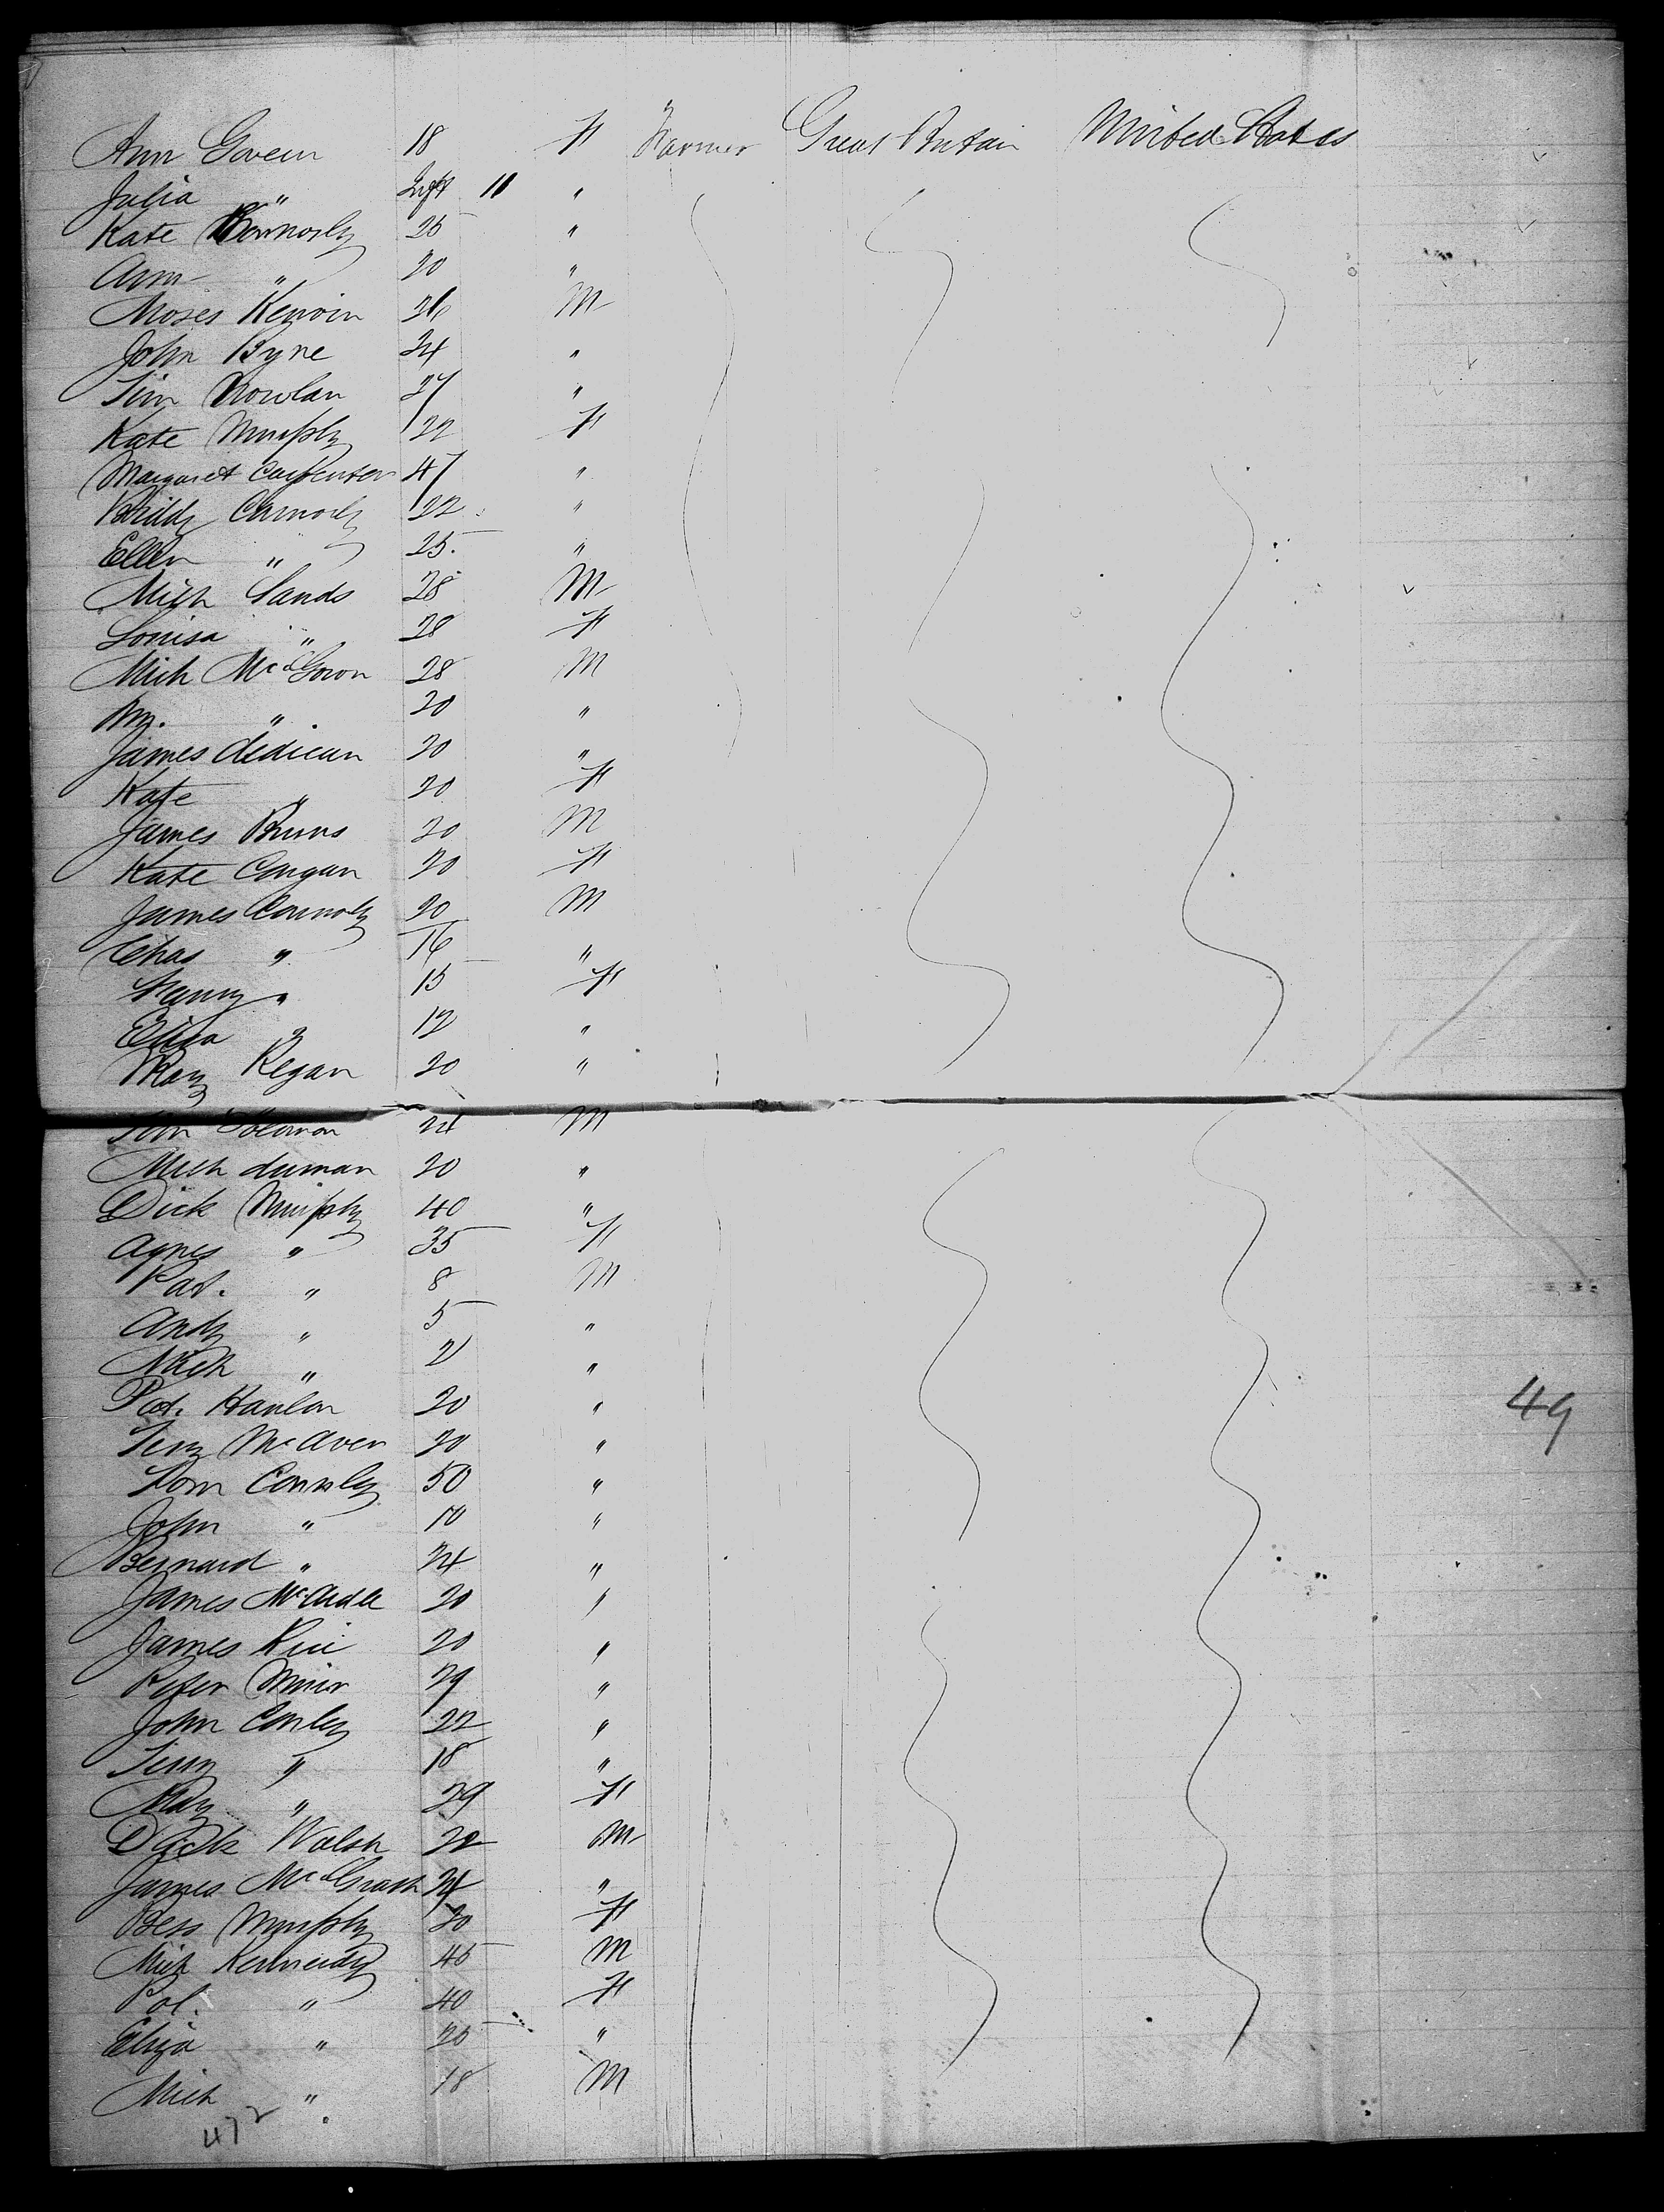 Ann Govern 18 F Farmer Great Britain United States
Julia " Inft 11 "
Kate Connorly 25 "
Ann " 20 "
Moses Kenvin 26 M
John Byrne 24 "
Tim Nowlan 27 "
Kate Murphy 22 F
Margaret Carpenter 47 "
Biddy Connorly 22 "
Ellen " 25. "
Mich Sands 28 M
Louisa " 28 F
Mich McGown 28 M
Wm. " 20 "
James dedican 20 "
Kate " 20 F
James Burns 20 M
Kate Congan 20 F
James Connoly 20 M
Chas " 16 "
Fanny " 15 F
Eliza " 12 "
Mary Regan 20 "
24 M
Mich duman 20 "
Dick Murphy 40 "
Agnes " 35 F
Pat. " 8 M
Andy " 5 "
Mich " 2 "
Pat. Hanlon 20 "
Terry McAven 20 "
Tom Connly 50 "
John " 10 "
Bernard " 24 "
James McArdle 20 "
James Rice 20 "
Peter Minor 29 "
John Conley 22 "
Terry " 18 "
Mary " 29 F
Dack Walsh 22 M
James McGrath 24 "
Bess Murphy 20 F
Mich Kennedy 45 M
Pol. " 40 F
Eliza " 25 "
Mich " 18 M
472
49